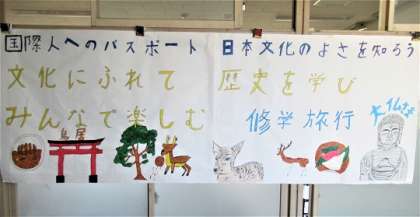 国際人へのパスポート 日本文化のよさを知ろう
文化にふれて 歴史を学び
みんなで楽しむ 修学旅行
鳥居
大仏さま